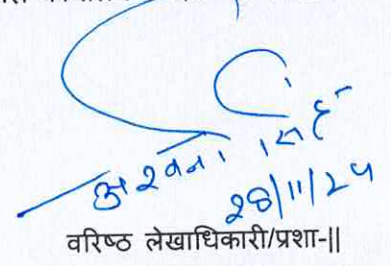 अश्वनी सिंह
28/11/24
वरिष्ठ लेखाधिकारी/प्रशा-||